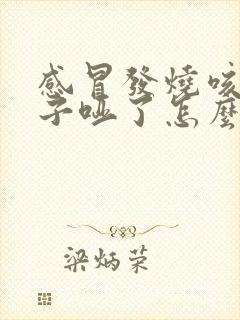 感冒發燒咳
子啞了怎麼
梁炳荣